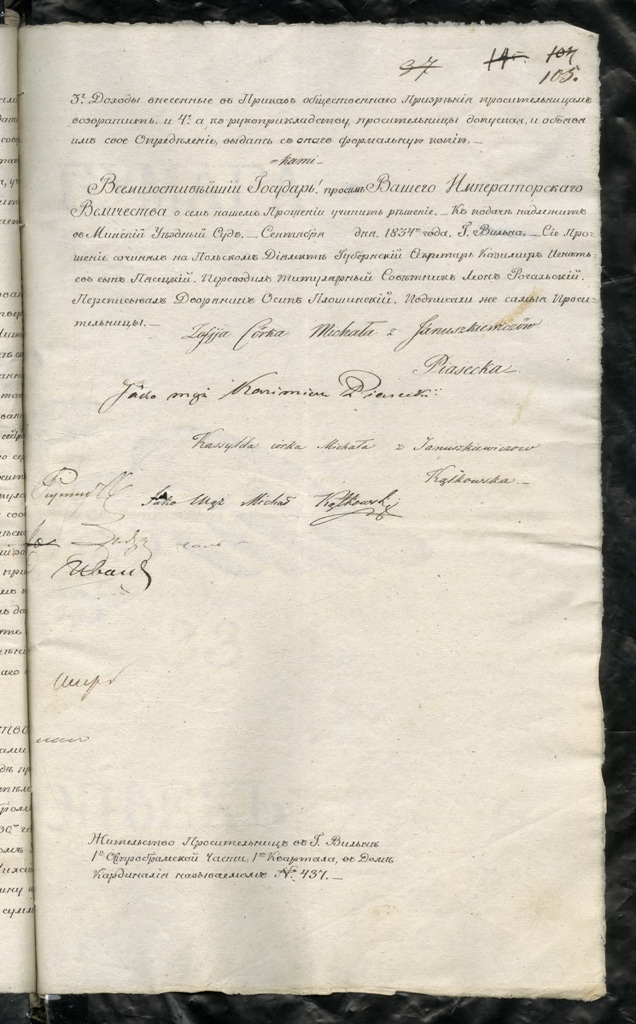 37 14 107
105.
3е. Доходы внесенные въ Приказъ общественнаго Призрѣнія просительницамъ
возвратить. и 4е. а къ рукоприкладству просительницы допуская, и объявя
имъ свое Опредѣленіе, выдать съ онаго формальную копію. —
Всемилостивѣйшій Государь! просимъ Вашего Императорскаго
Величества о семъ нашемъ Прошеніи учинить рѣшеніе. — Къ подачѣ надлежитъ
въ Минскій Уѣздный Судъ. — Сентября дня. 1834го года. Г. Вильно. — Сіе Про-
шеніе сочинялъ на Польскомъ Діалектѣ Губернскій Секретарь Казимиръ Игнать-
евъ сынъ Пясецкій. Переводилъ Титулярный Совѣтникъ Леонъ Рогальскій.
Переписывалъ Дворянинъ Осипъ Плошинскій. Подписали же самыя Проси-
тельницы. —
Zofija Córka Michała z Januszkiewiczów
Piasecka
Jako mąż Kazimierz Piasecki
Kassylda córka Michała z Januszkiewiczow
Kątkowska —
Jako Mąż Michał Kątkowski
Иван
Жительство Просительницъ въ Г. Вильнѣ
1й Остробрамской Части, 1го Квартала, въ Домѣ
Кардиналія называемомъ №. 437. —